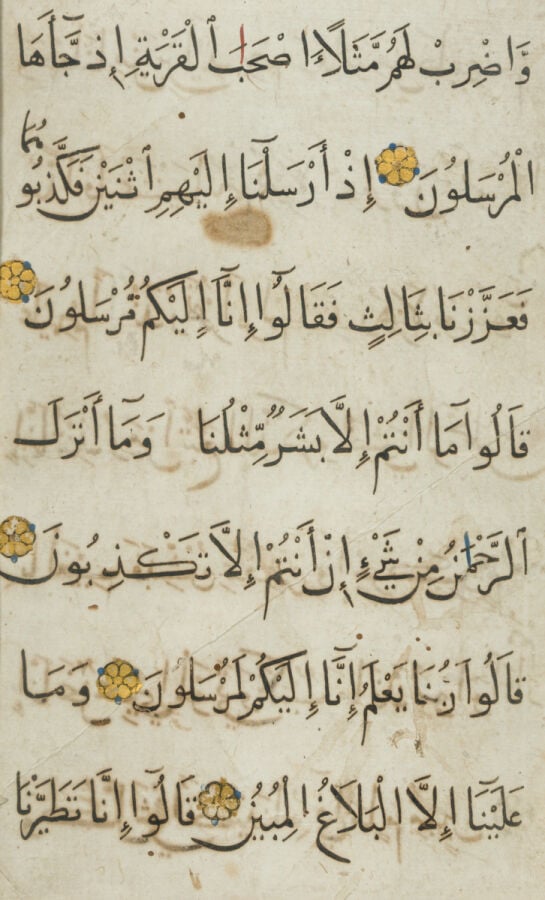 وَّاضْرِبْ لَهُمْ مَّثَلًا اَصْحَٰبَ ٱلْقَرْيَةِ إِذْ جَآءَهَا
الْمُرْسَلُونَ إِذْ أَرْسَلْنَآ إِلَيْهِمِ ٱثْنَيْنِ فَكَذَّبُوهُمَا
فَعَزَّزْنَا بِثَالِثٍ فَقَالُوٓا إِنَّآ إِلَيْكُمْ مُّرْسَلُونَ
قَالُوا مَآ أَنْتُمْ إِلَّا بَشَرٌ مِّثْلُنَا وَمَآ أَنْزَلَ
ٱلرَّحْمٰنُ مِنْ شَيْءٍ إِنْ أَنْتُمْ إِلَّا تَكْذِبُونَ
قَالُوا رَبُّنَا يَعْلَمُ إِنَّآ إِلَيْكُمْ لَمُرْسَلُونَ وَمَا
عَلَيْنَآ إِلَّا الْبَلَاغُ الْمُبِيْنُ قَالُوٓا إِنَّا تَطَيَّرْنَا